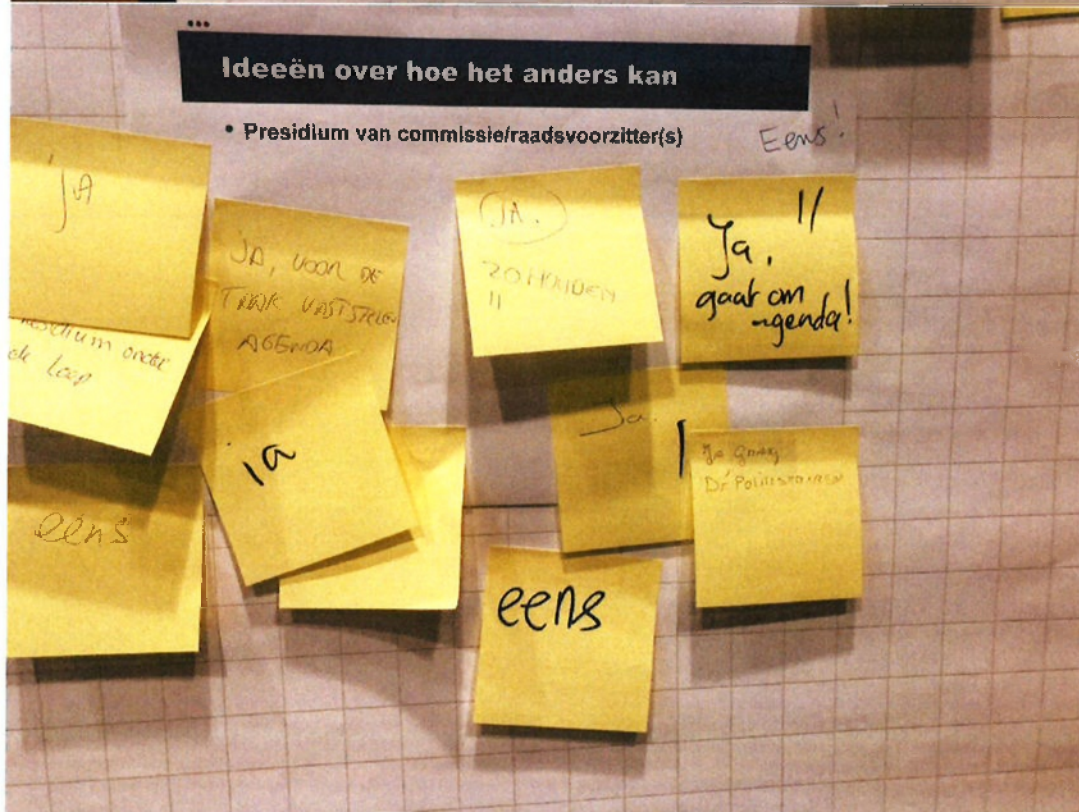 Ideeën over hoe het anders kan
• Presidium van commissie/raadsvoorzitter(s)
Eens!
ja
JA, VOOR DE
TANK VASTSTELLEN
AGENDA
JA.
ZO HOUDEN
!!
Ja, !/
gaat om
agenda!
onder
de Loep
ja
Ja.
Ja graag
eens
eens